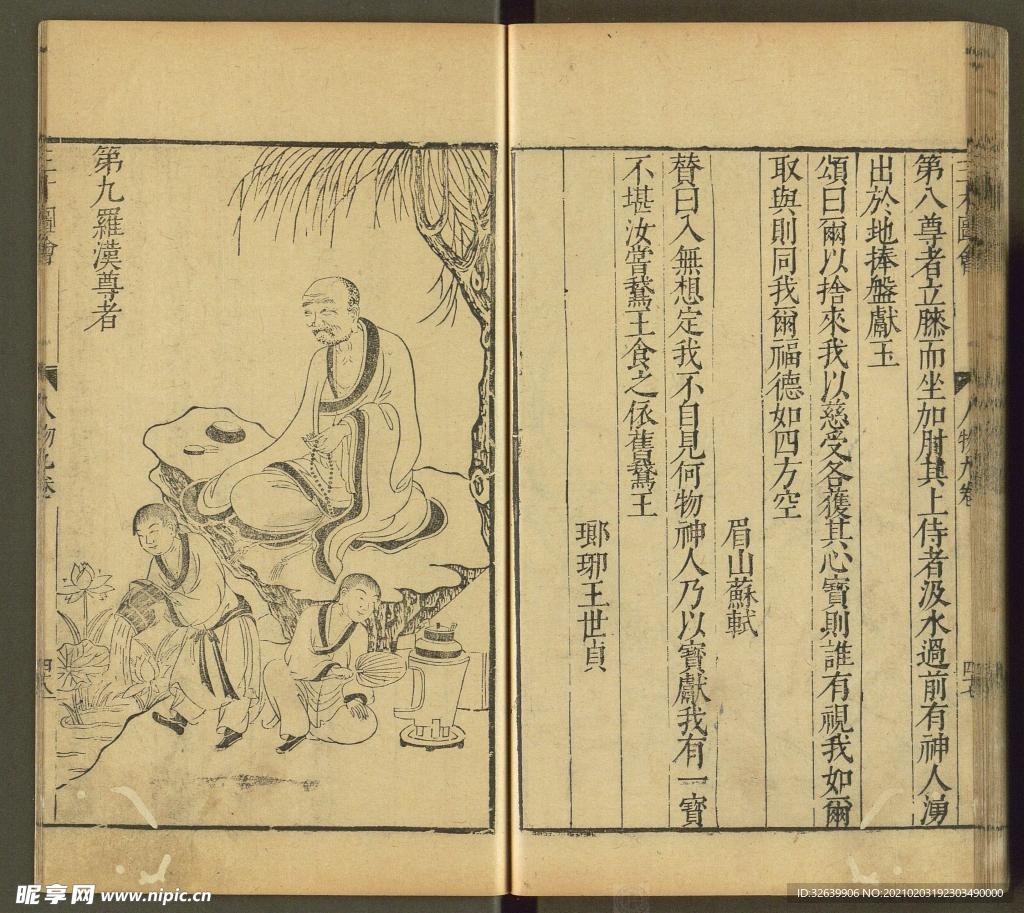 三才圖會
人物九卷
四七
第八尊者立膝而坐加肘其上侍者汲水過前有神人湧
出於地捧盤獻玉
頌曰爾以捨來我以慈受各獲其心寶則誰有視我如爾
取與則同我爾福德如四方空
眉山蘇軾
賛曰入無想定我不自見何物神人乃以寶獻我有一寶
不堪汝嘗鵞王食之依舊鵞王
瑯琊王世貞
第九羅漢尊者
三才圖會
人物九卷
四八
昵享网 www.nipic.cn
ID:32639906 NO:20210203192303490000